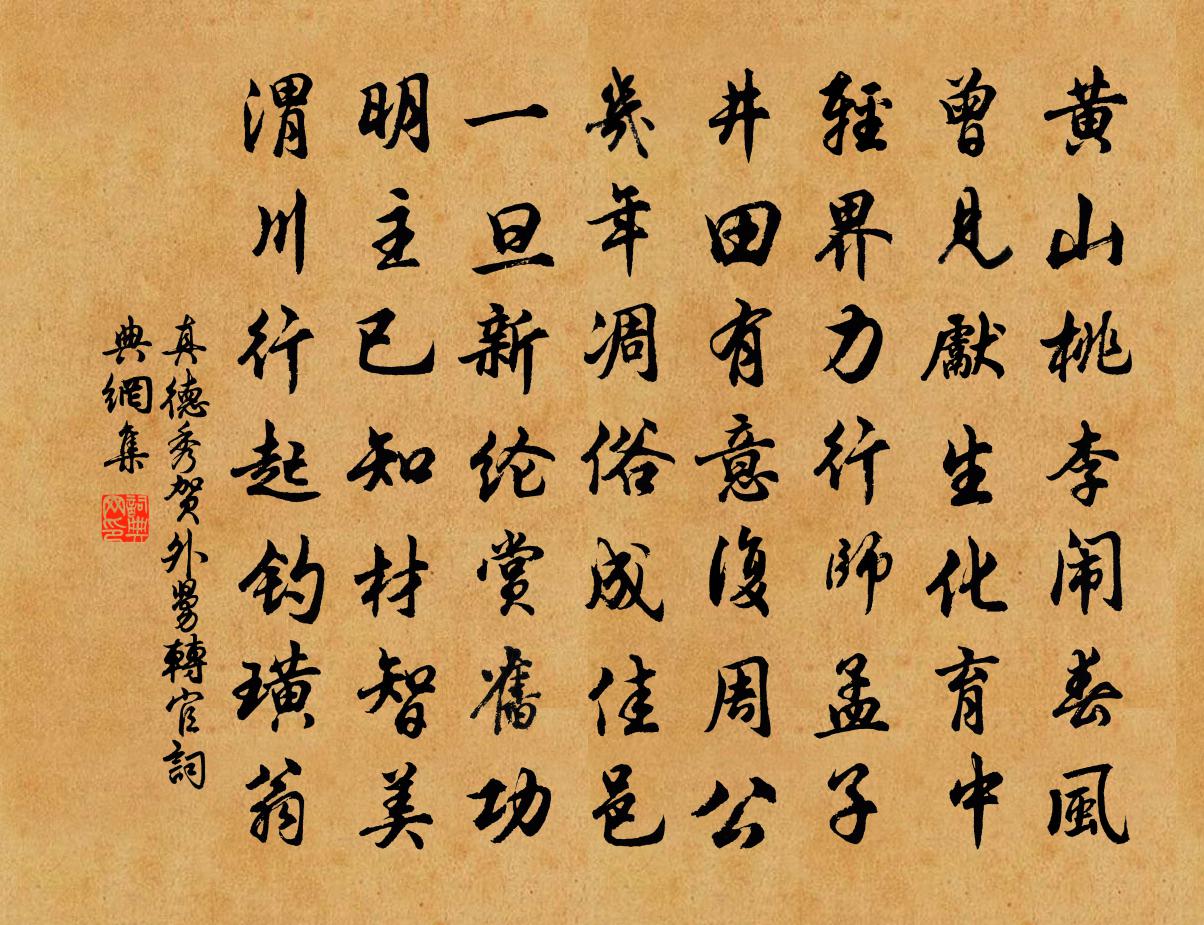 黄山桃李闹春風
曾見獻生化育中
輕界力行師孟子
井田有意復周公
幾年凋俗成佳邑
一旦新纶赏奮功
明主已知材智美
渭川行起钓璜翁
真德秀贺外舅轉官詞
典網集
詞典網印